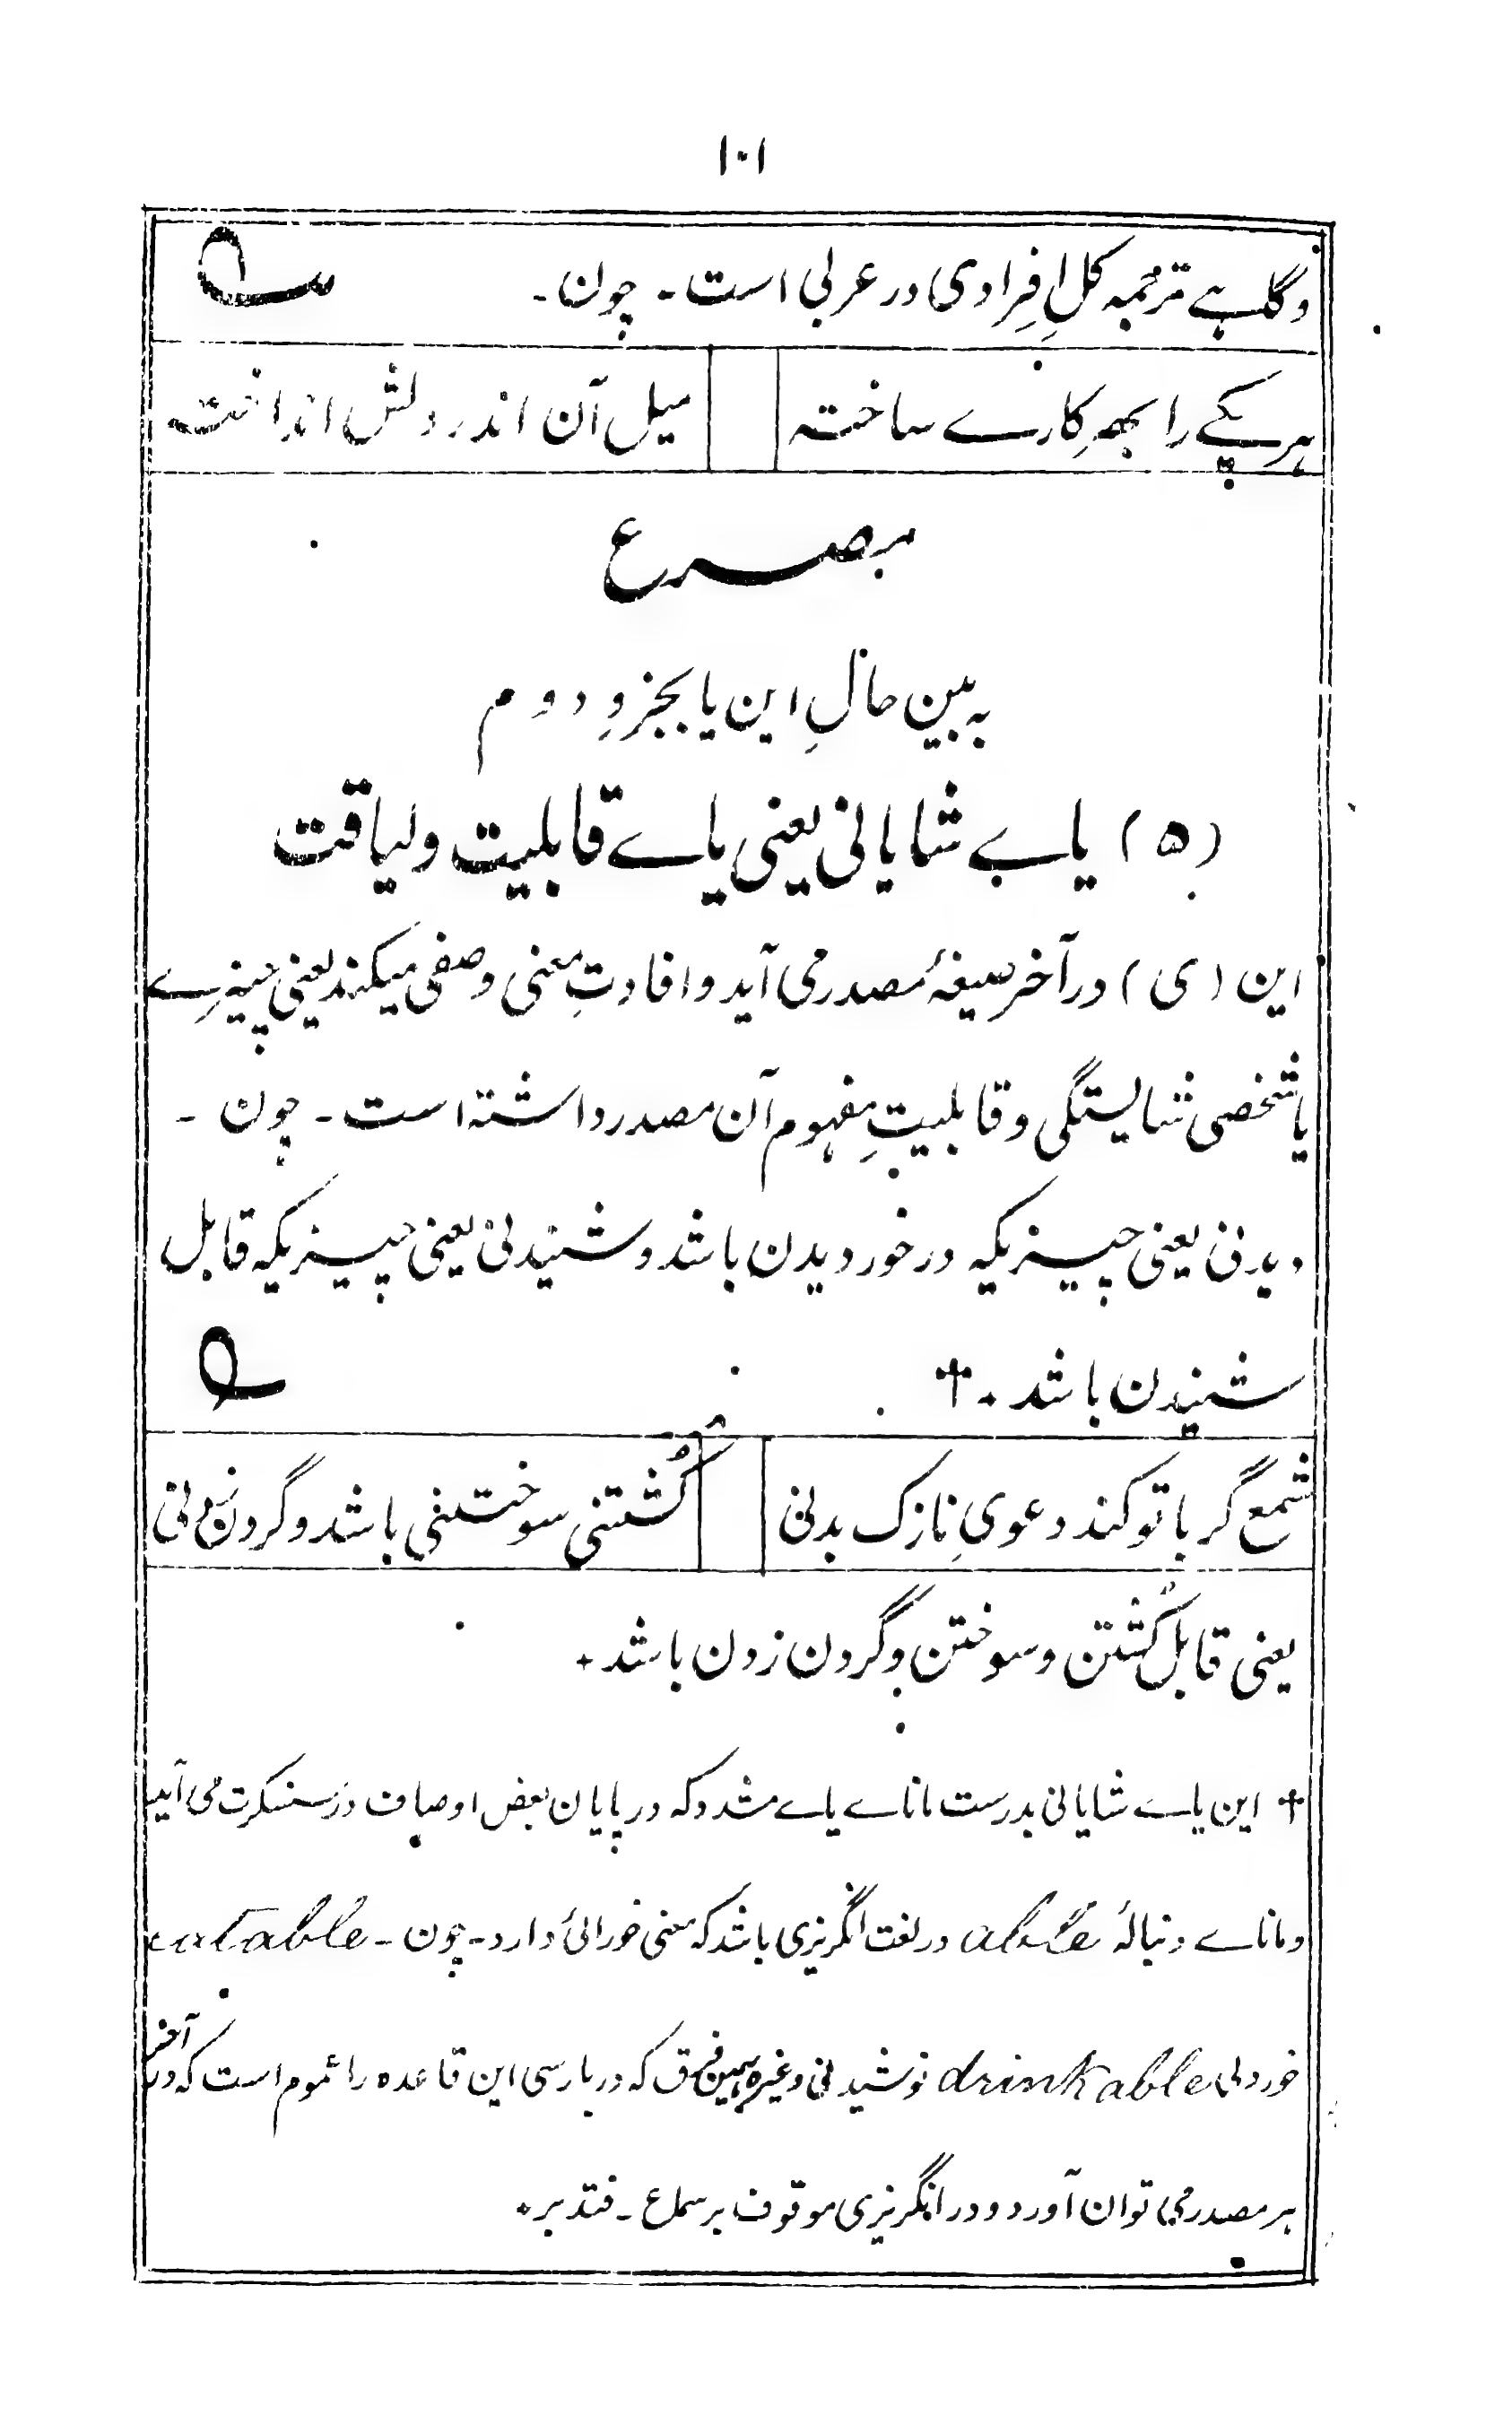 ۱۰۱
وگاہے ترجمہ کلِ اِفرادی در عربی است - چون -
ہریکے را بھرِ کارے ساختہ
میل آن اندر دلش انداختہ
مصرع
بہ بین حالِ این یا بجزوِ دوم
(۵) یاے شایانی یعنی یاے قابلیت ولیاقت
این (ی) در آخر صیغۂ مصدر می آید وافادتِ معنی وصفی میکند یعنی چیزے
یا شخصی شایستگی وقابلیتِ مفہوم آن مصدر داشتہ است - چون -
دیدنی یعنی چیزیکہ درخور دیدن باشد وشنیدنی یعنی چیزیکہ قابل
شنیدن باشد ۔ †
شمع گر با تو کند دعویِ نازک بدنی
کُشتنی سوختنی باشد وگردن زدنی
یعنی قابل کُشتن وسوختن وگردن زدن باشد ۔
† این یاے شایانی بدرست ماناے یاے مشدد کہ در پایان بعض اوصاف در سنسکرت می آید
وماناے دنبالۂ able در لغت انگریزی باشد کہ معنی خورائی دارد - چون - eatable
خوردنی drinkable نوشیدنی وغیرہ ہمین فرق کہ در پارسی این قاعدہ را عموم است کہ در آخر
ہر مصدر می توان آورد ودر انگریزی موقوف بر سماع - فتدبر ۔